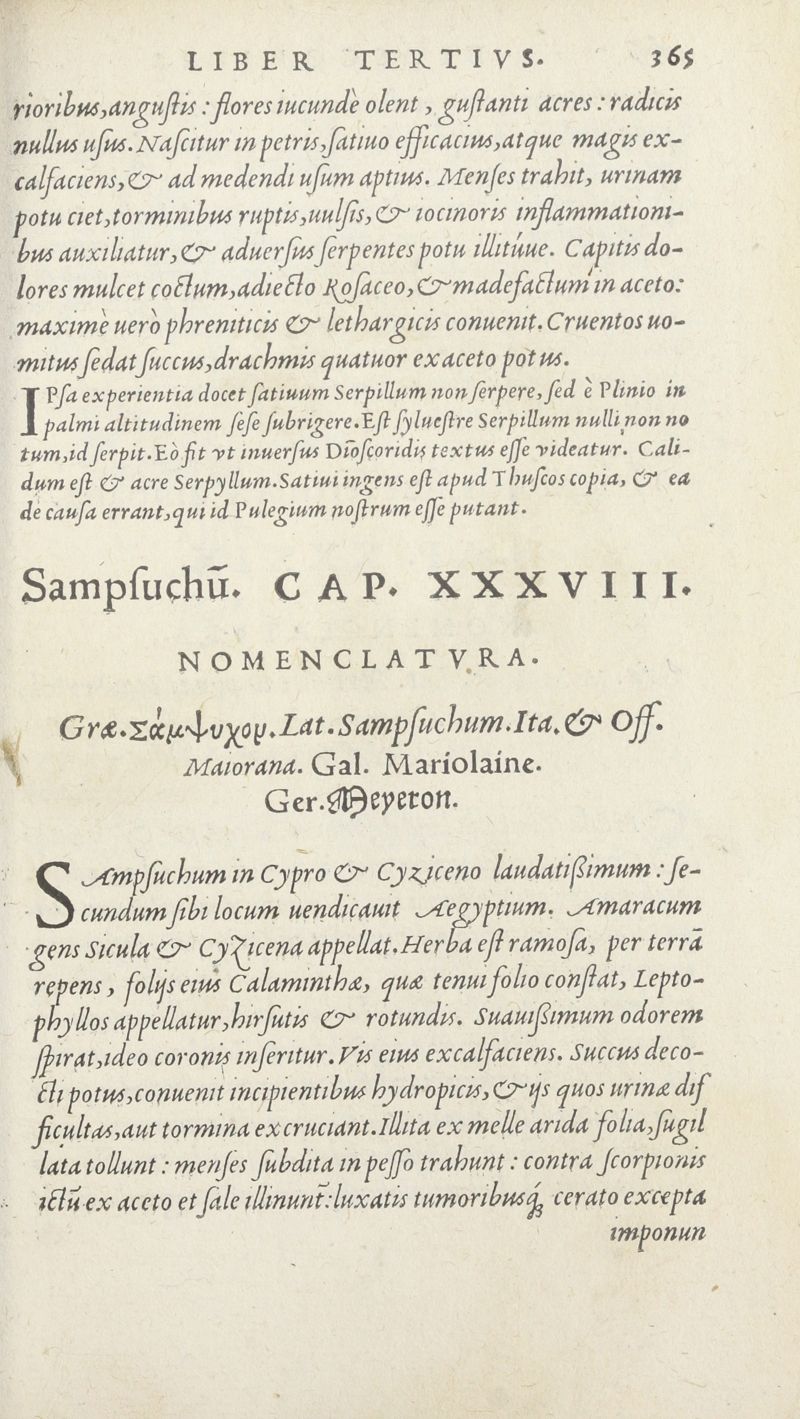 LIBER TERTIVS. 365
rioribus,angustis : flores iucundè olent , gustanti acres : radicis
nullus usus. Nascitur in petris,satiuo efficacius,atque magis ex-
calfaciens,& ad medendi usum aptius. Menses trahit, urinam
potu ciet,torminibus ruptis,uulsis,& iocinoris inflammationi-
bus auxiliatur,& aduersus serpentes potu illitúue. Capitis do-
lores mulcet coctum,adiecto Rosaceo,& madefactum in aceto:
maximè uerò phreniticis & lethargicis conuenit. Cruentos uo-
mitus sedat succus,drachmis quatuor ex aceto potus.
IPsa experientia docet satiuum Serpillum non serpere, sed è Plinio in
palmi altitudinem sese subrigere. Est sylueſtre Serpillum nulli non no
tum,id serpit. Eò fit vt inuersus Dioscoridis textus esse videatur. Cali-
dum est & acre Serpyllum. Satiui ingens est apud Thuscos copia, & ea
de causa errant,qui id Pulegium nostrum esse putant.
Sampsuchū. CAP. XXXVIII.
NOMENCLATVRA.
Græ. Σάμψυχον. Lat. Sampsuchum. Ita. & Off.
Maiorana. Gal. Mariolaine.
Ger. Meyeron.
SAmpsuchum in Cypro & Cyziceno laudatißimum : se-
cundum sibi locum uendicauit Aegyptium. Amaracum
gens Sicula & Cyzicena appellat. Herba est ramosa, per terrā
repens , folijs eius Calaminthæ, quæ tenui folio constat, Lepto-
phyllos appellatur,hirsutis & rotundis. Suauißimum odorem
spirat,ideo coronis inseritur. Vis eius excalfaciens. Succus deco-
cti potus,conuenit incipientibus hydropicis,& ijs quos urinæ dif
ficultas,aut tormina excruciant. Illita ex melle arida folia,sugil
lata tollunt : menses subdita in pesso trahunt : contra scorpionis
ictū ex aceto et sale illinunt: luxatis tumoribusq́; cerato excepta
imponun